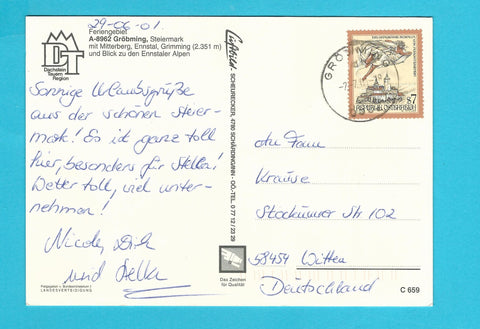 29-06-01.
Feriengebiet
A-8962 Gröbming, Steiermark
mit Mitterberg, Ennstal, Grimming (2.351 m)
und Blick zu den Ennstaler Alpen
DT
Dachstein
Tauern
Region
Sonnige Urlaubsgrüße
aus der schönen Steier-
mark! Es ist ganz toll
hier, besonders für Stella!
Wetter toll, viel unter-
nehmen!
Nicole, Dirk
und Stella
Freigegeben v. Bundesministerium f.
LANDESVERTEIDIGUNG
SCHEURECKER, 4780 SCHÄRDING/INN - OÖ - TEL. 0 77 12 / 23 29
Das Zeichen
für Qualität
GRÖBMING
S7
REPUBLIK ÖSTERREICH
An Frau
Krause
Stockumer Str 102
58454 Witten
Deutschland
C 659